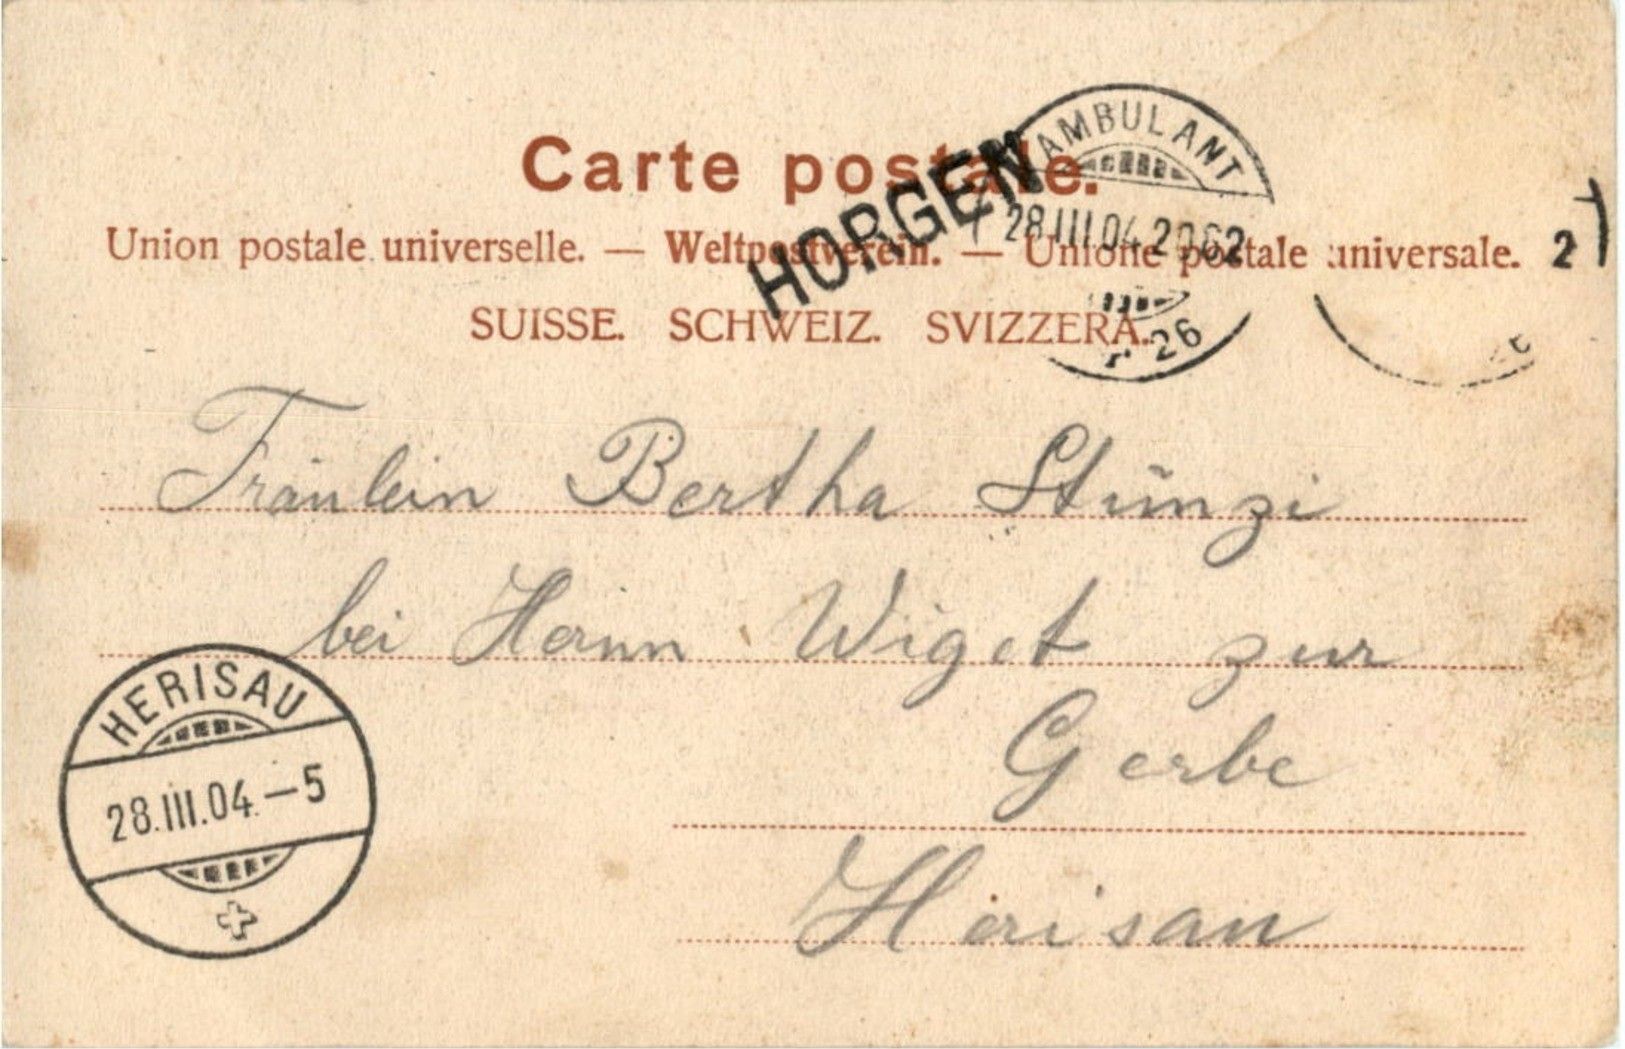 Carte postale.
HORGEN
AMBULANT
28.III.04.2062
26
Union postale universelle. — Weltpostverein. — Unione postale universale.
2
SUISSE. SCHWEIZ. SVIZZERA.
Fräulein Bertha Stünzi
bei Herrn Wiget zur
Gerbe
Herisau
HERISAU
28.III.04.–5